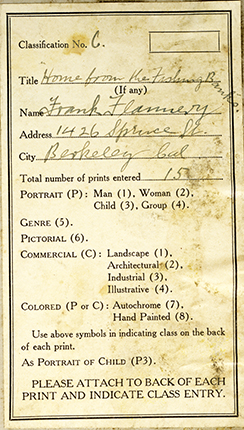 Classification No. C.
Title Home from the Fishing Banks.
(If any)
Name Frank Flannery
Address 1426 Spruce St.
City Berkeley Cal
Total number of prints entered 15
PORTRAIT (P): Man (1), Woman (2),
Child (3), Group (4).
GENRE (5).
PICTORIAL (6).
COMMERCIAL (C): Landscape (1),
Architectural (2),
Industrial (3),
Illustrative (4).
COLORED (P or C): Autochrome (7),
Hand Painted (8).
Use above symbols in indicating class on the back
of each print.
AS PORTRAIT OF CHILD (P3).
PLEASE ATTACH TO BACK OF EACH
PRINT AND INDICATE CLASS ENTRY.